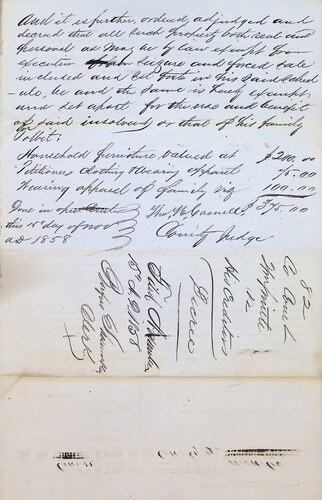 And it is further, ordered, adjudged and
decreed that all such property both real and
personal as may be by law exempt from
execution seizure and forced sale
included and set forth in his said Sched
-ule, be and the same is hereby exempt
and set apart for the use and benefit
of said insolvent or that of his family
to wit;
Household furniture valued at $200.00
Petitioners clothing Wearing apparel 75.00
Wearing apparel of family 100.00
Done in open Court $375.00
this 15 day of Nov
AD 1858
County Judge
82
Co Court
Wm Smith
vs
His Creditors
Decree
Filed
1858
Clerk